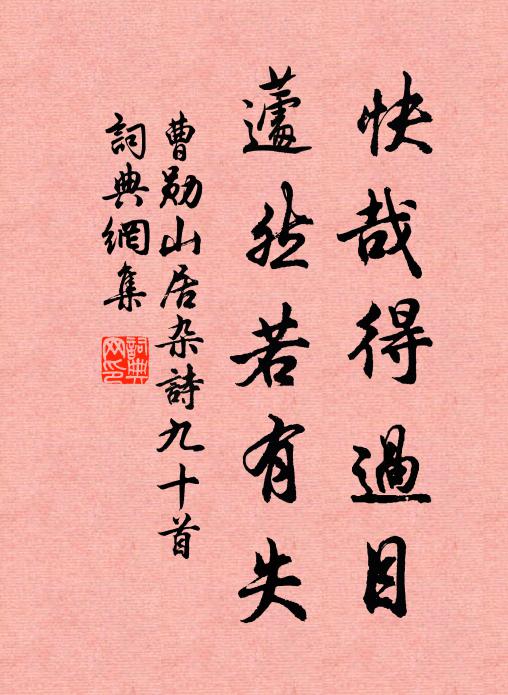 快哉得過目
蘧然若有失
曹勛山居杂詩九十首
詞典網集
詞典
网印